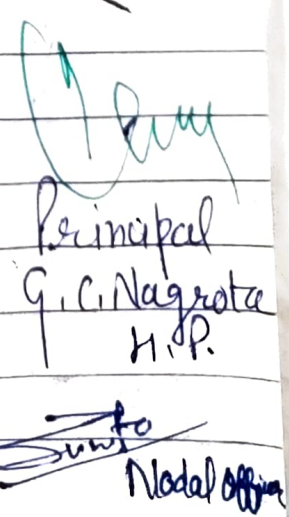 Principal
G.C. Nagrota
H.P.
Nodal Officer